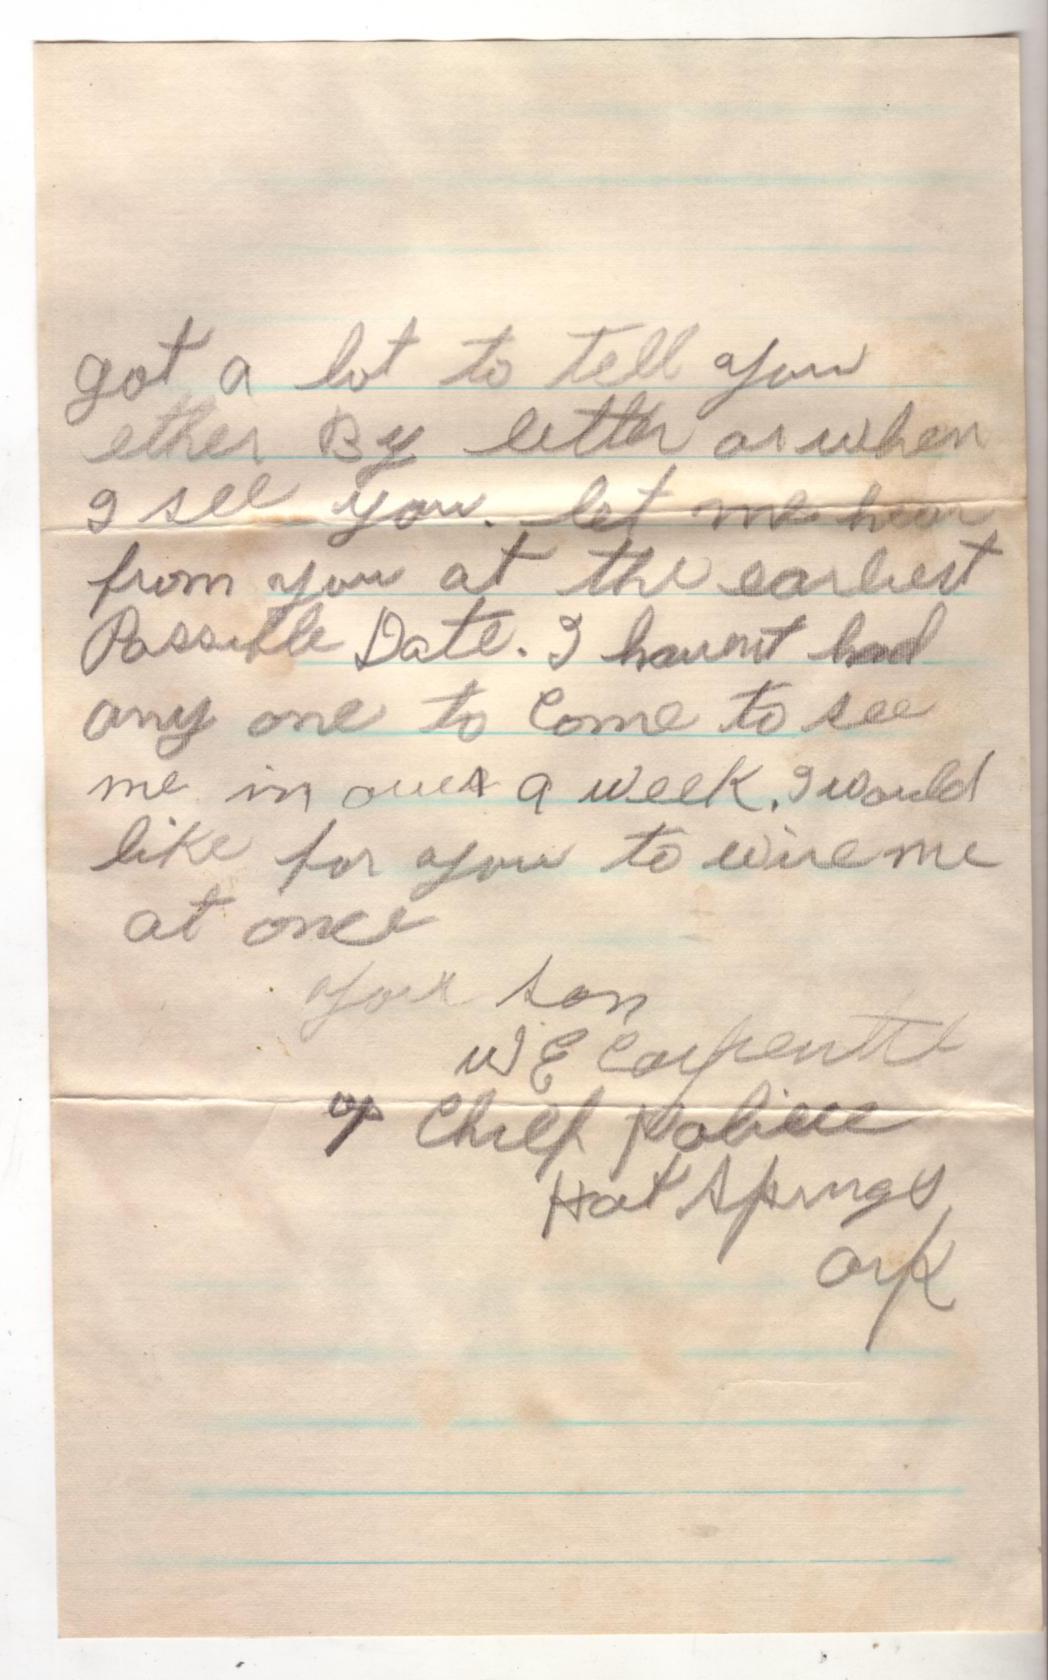 got a lot to tell you
ether By letter or when
I see you. let me hear
from you at the earliest
Possible Date. I havent had
any one to Come to see
me in over a week. I would
like for you to wire me
at once
your son
W E Carpenter
℅ Chief Police
Hot Springs
Ark